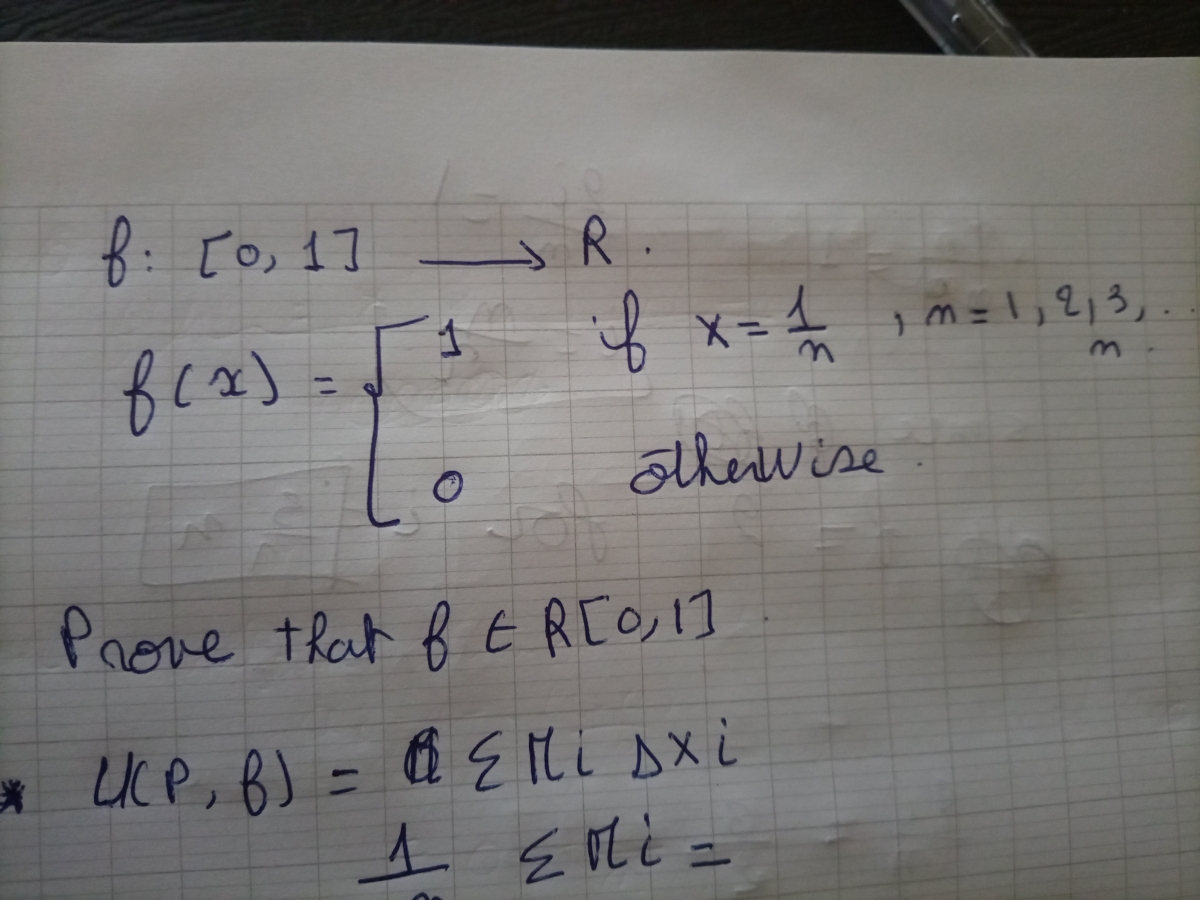 f: [0, 1] ⟶ R.
f(x) = { 1 if x = 1/n , n = 1, 2, 3, ... n.
0 otherwise.
Prove that f ∈ R[0,1].
* U(P, f) = Σ Mi Δxi
1/n Σ Mi =